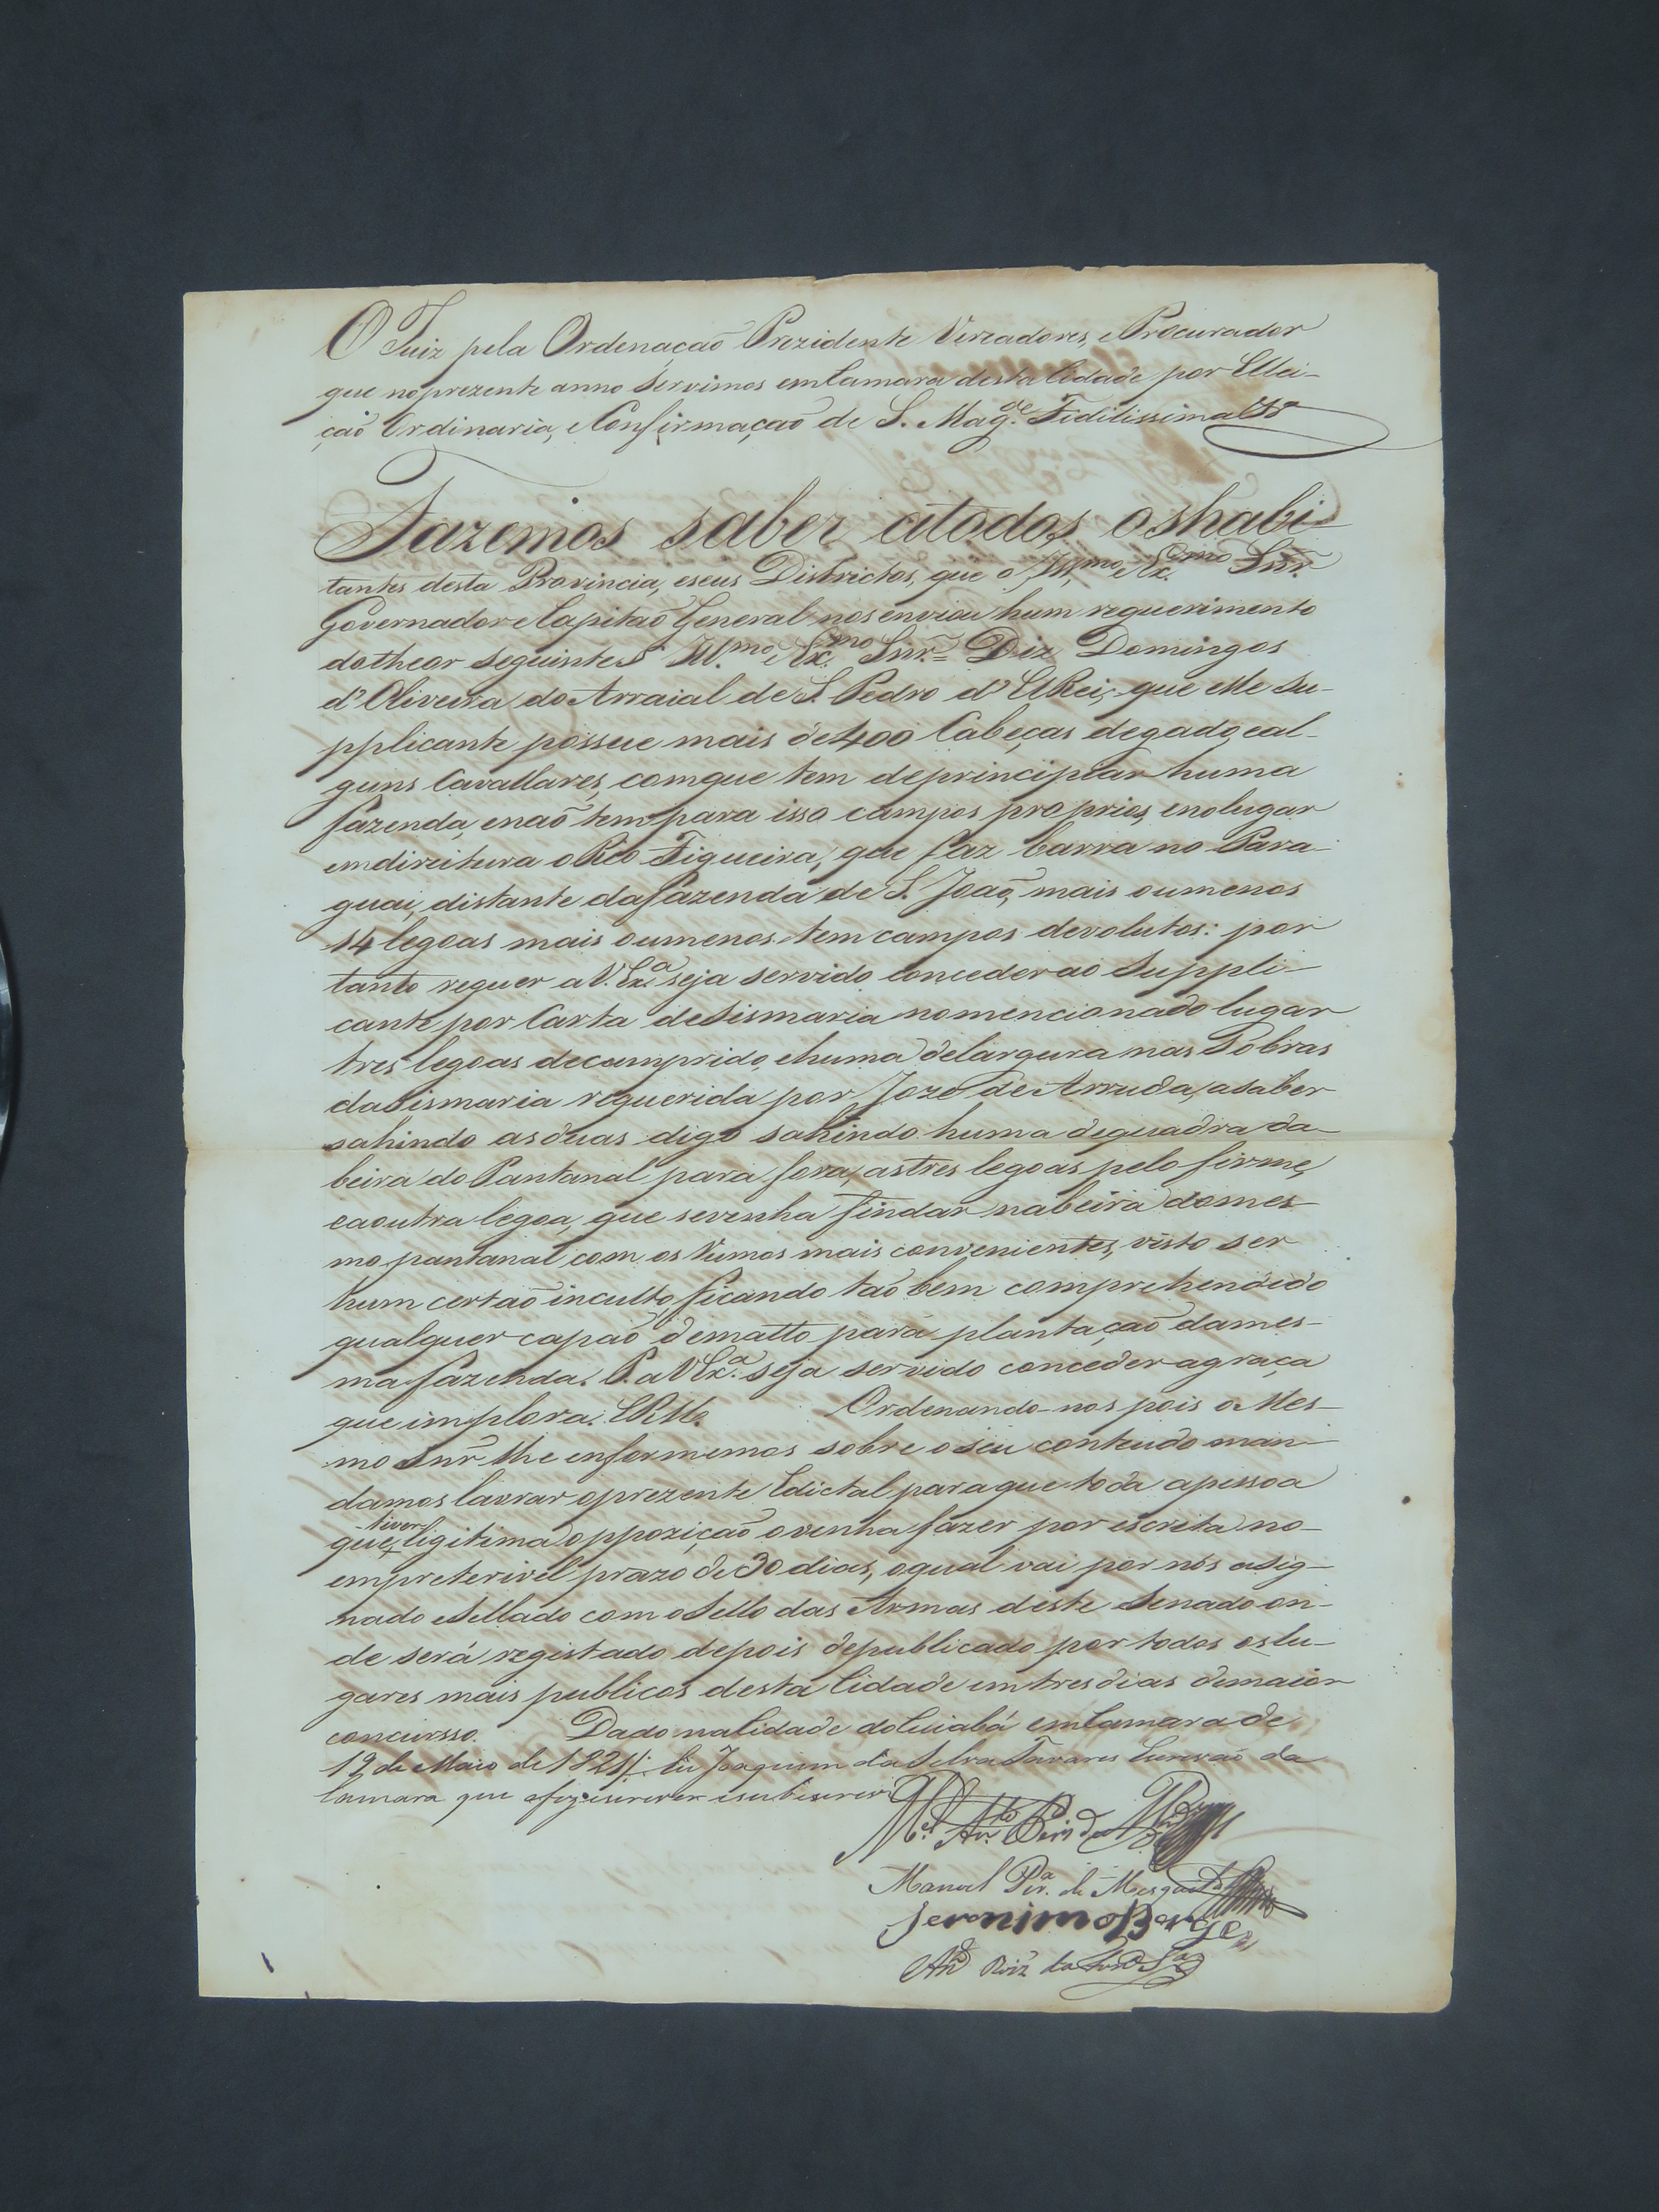 O Juiz pela Ordenação Prezidente Vereadores, e Procurador
que no prezente anno servimos em Camara desta Cidade por Ellei-
ção Ordinaria, e Confirmação de S. Mag.de Fidilissima
Fazemos saber atodos oshabi-
tantes desta Provincia, eseus Districtos, que o Ill.mo e Ex.mo Snr.
Governador e Capitaõ General nos enviou hum requerimento
dotheor seguinte Ill.mo e Ex.mo Snr. = Diz Domingos
d'Oliveira do Arraial de S. Pedro d'ElRei, que elle Su-
pplicante possue mais de 400 Cabeças degado, eal-
guns Cavallares, comque tem deprincipiar huma
fazenda enaõ tem para isso campos proprios, enolugar
emdireitura o Rio Figueira, que faz barra no Para-
guai, distante dafazenda de S. Joaõ, mais oumenos
14 legoas mais oumenos tem campos devolutos: por
tanto requer a V. Ex.a seja servido conceder ao Suppli-
cante por Carta deSismaria nomencionado lugar
tres legoas decomprido, ehuma delargura nas Sobras
daSismaria requerida por Joze de Arruda, asaber
sahindo asduas digo sahindo huma dequadra da
beira do Pantanal para fora, astres legoas pelo firme,
eaoutra legoa, que sevenha findar nabeira domes-
mo pantanal com os Rumos mais convenientes, visto ser
hum certaõ inculto, ficando taõbem comprehendido
qualquer capaõ dematto para plantaçaõ dames-
ma fazenda. P. a V Ex.a seja servido conceder agraça
que implora. E R M.ce Ordenando-nos pois o Mes-
mo Snr. lhe enformemos sobre oseu conteudo man-
damos lavrar oprezente Edictal paraque toda apessoa
que tiver ligitima oppoziçaõ ovenha fazer por escrita no-
empreterivel prazo de 30 dias, oqual vai por nós asig-
nado eSellado com oSello das Armas deste Senado on-
de será registado depois depublicado por todos oslu-
gares mais publicos desta Cidade em tres dias demaior
concursso. Dado naCidade doCuiabá emCamara de
19 de Maio de 1821. Eu Joaquim da Silva Tavares Escrivaõ da
Camara que ofiz escrever esubscrevi
M.el An.to
Manoel Per.a de Mesquita
Jeronimo Borges
Roiz da